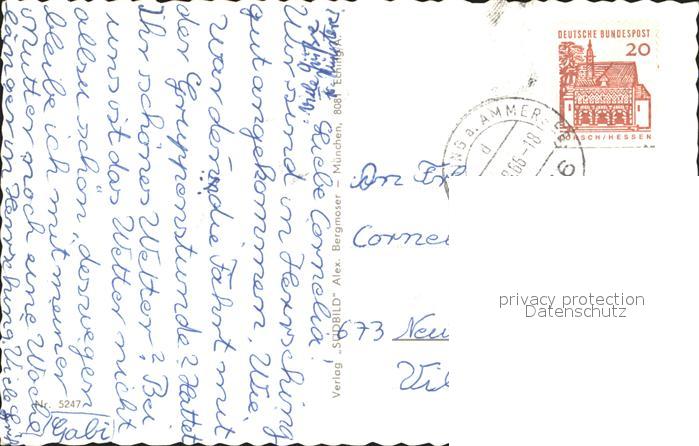 Liebe Cornelia!
Wir sind in Herrsching
gut angekommen. Wie
war denn die Fahrt mit
der Gruppenstunde? Hattet
Ihr schönes Wetter? Bei
uns ist das Wetter nicht
allzu schön, deswegen
bleibe ich mit meiner
Mutter noch eine Woche
länger in Herrsching. Viele
Gabi
Viele Grüße
Nr. 5247
Verlag „SÜDBILD" Alex. Bergmoser – München, 808
DEUTSCHE BUNDESPOST
20
RSCH/HESSEN
a. AMMERS
d
66-18
An
Corne
673 Neu
privacy protection
Datenschutz